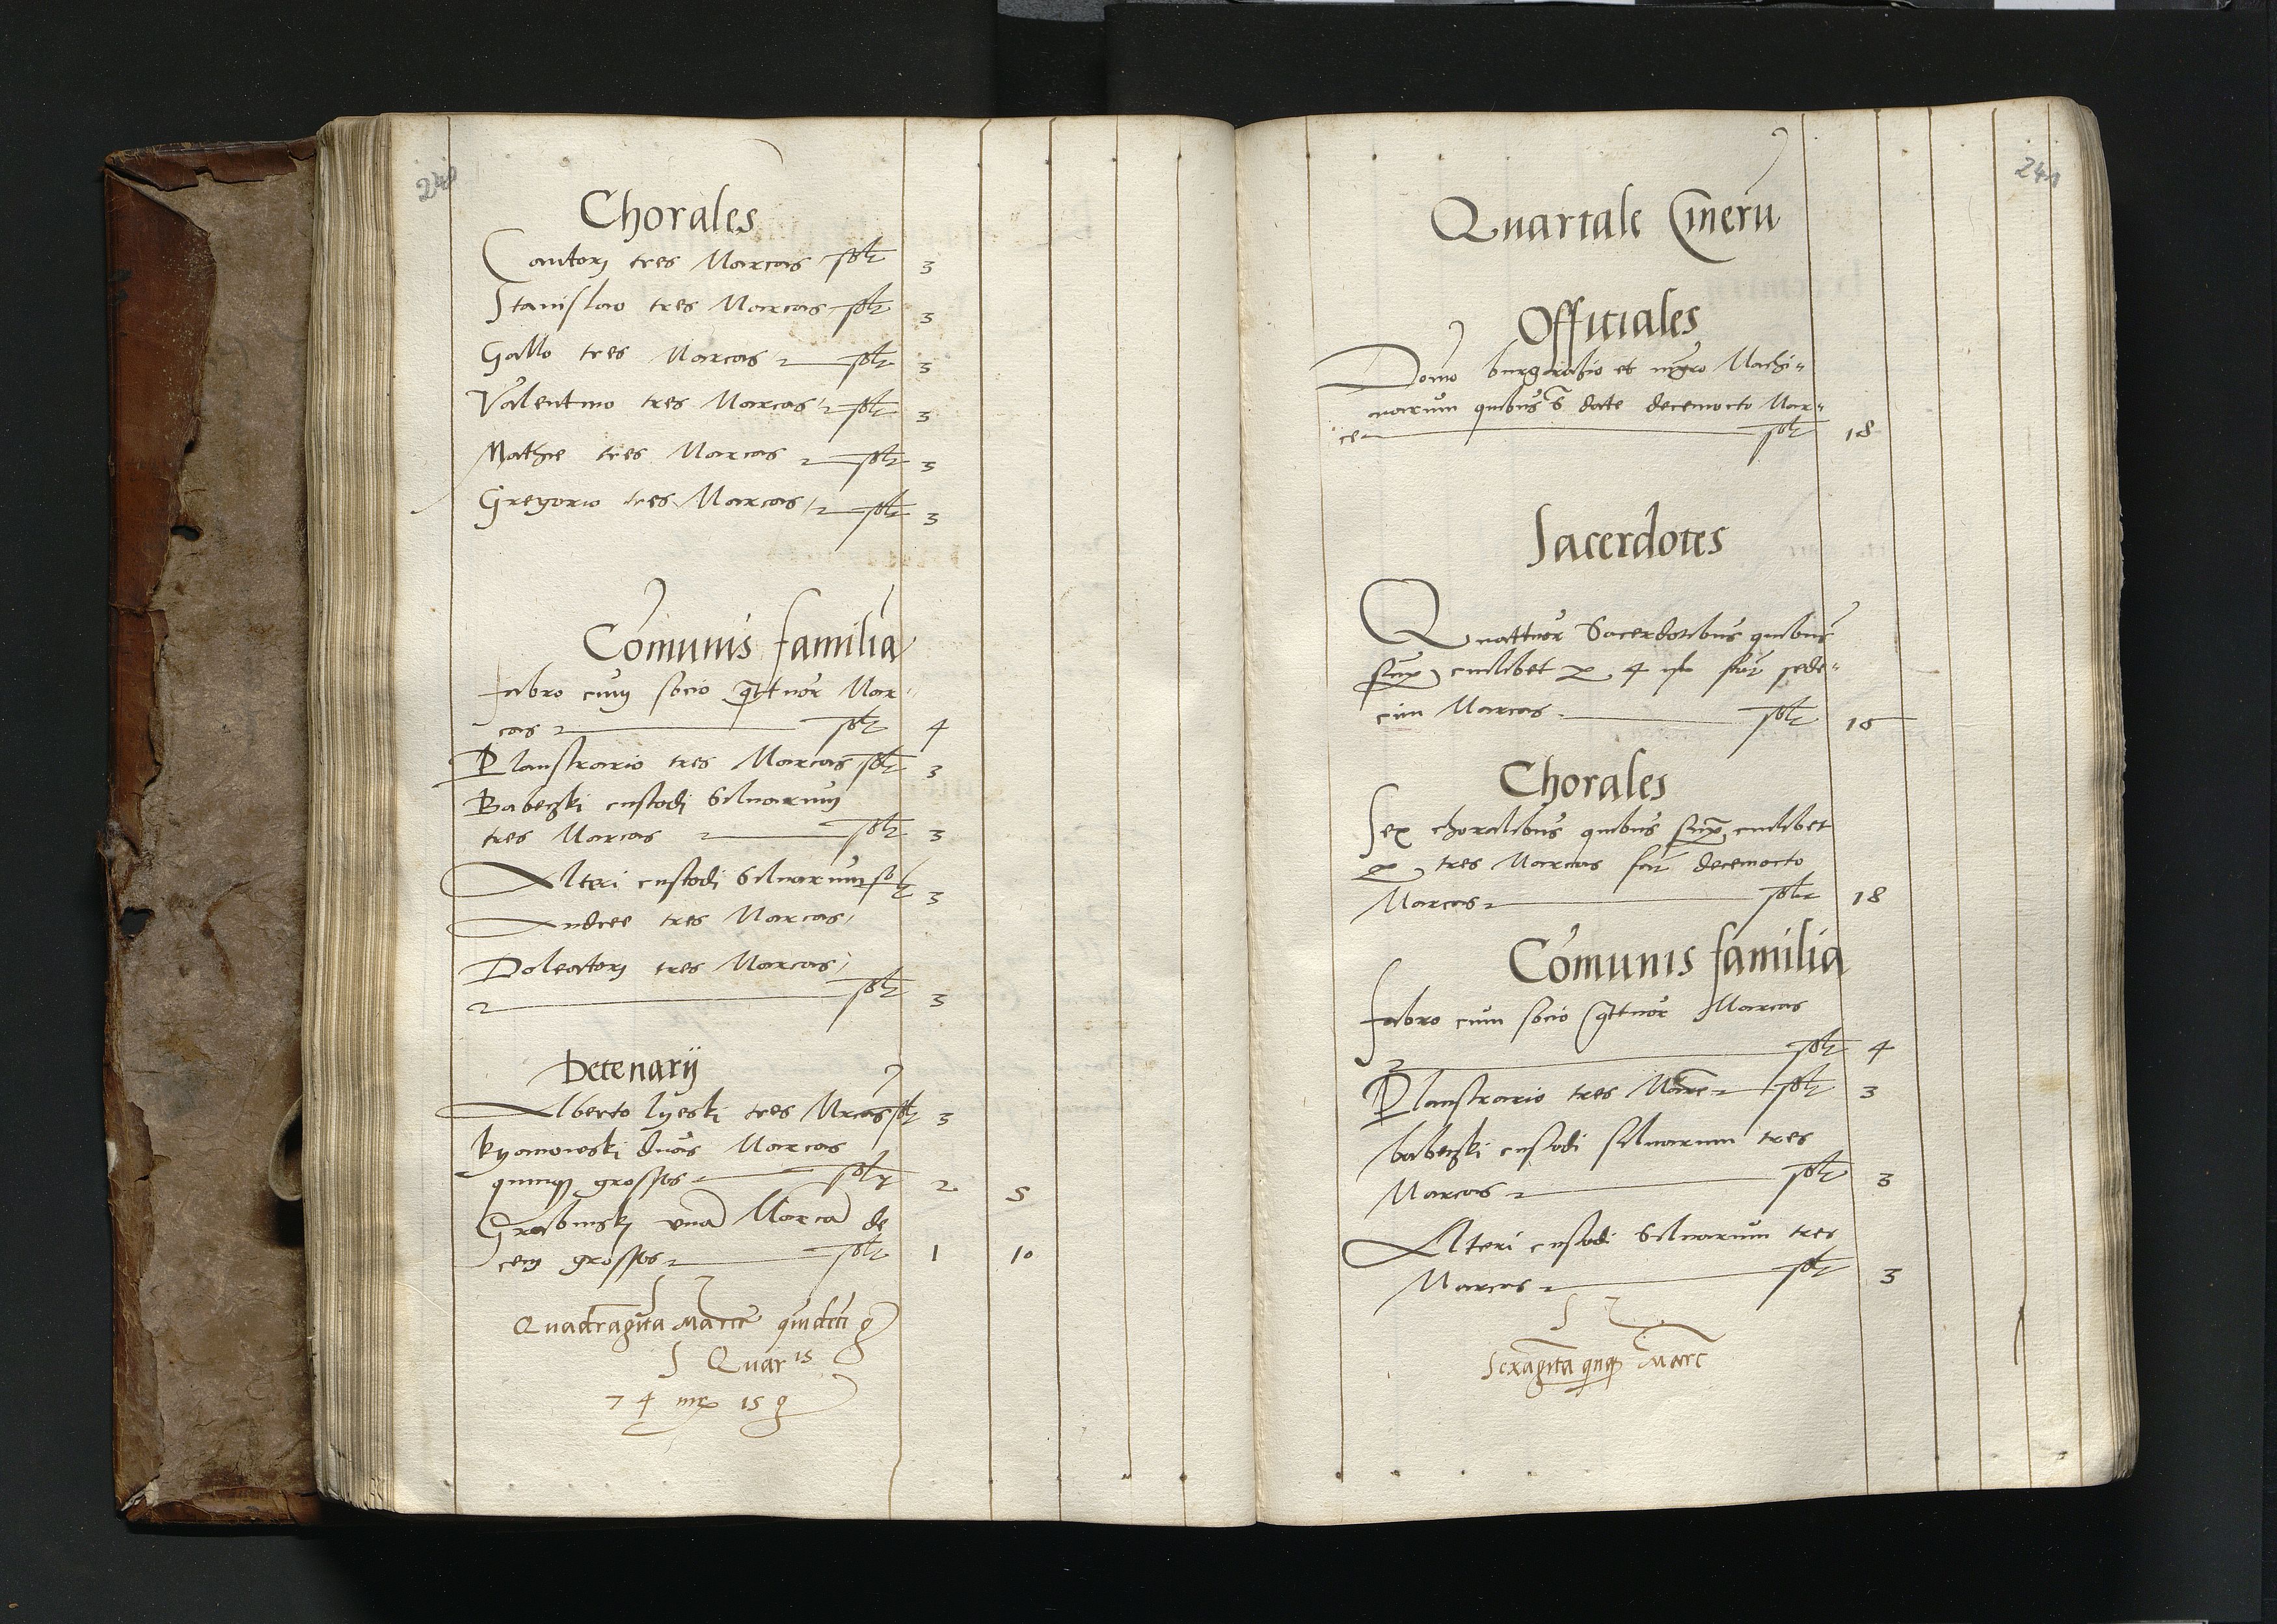 240
Chorales
Cantorj tres Marcas solt 3
Stanislao tres Marcas solt 3
Gallo tres Marcas solt 3
Valentino tres Marcas solt 3
Mathie tres Marcas solt 3
Gregorio tres Marcas solt 3
Comunis familia
Fabro cum socio qttuor Mar
cas solt 4
Plaustrario tres Marcas solt 3
Babeczki custodi Siluarum
tres Marcas solt 3
Alteri custodi Siluarum solt 3
Andree tres Marcas
Doleatorj tres Marcas
solt 3
Detenarij
Alberto lyeski tres Mrcas solt 3
kyanowski duas Marcas
quinqz grossos solt 2 5
Grabinskj vna Marca de
cem grossos solt 1 10
Quadraginta Marce quideci g
S Quar is
74 mr 15 g
241
Quartale Cineru
Offitiales
Domo burgrabio et mgro Machi
narum quibus date decemocto Mar
ce solt 18
Sacerdotes
Quattuor Sacerdotibus quibus
cuilibet 4 fat sede
cim Marcas solt 16
Chorales
Sex choralibus quibus cuilibet
tres Marcas fat decemocto
Marcas solt 18
Comunis familia
Fabro cum socio qttuor Marcas
solt 4
Plaustrario tres Marc solt 3
babeczki custodi siluarum tres
Marcas solt 3
Alteri custodi Siluarum tres
Marcas solt 3
Sexaginta qnqz Marc